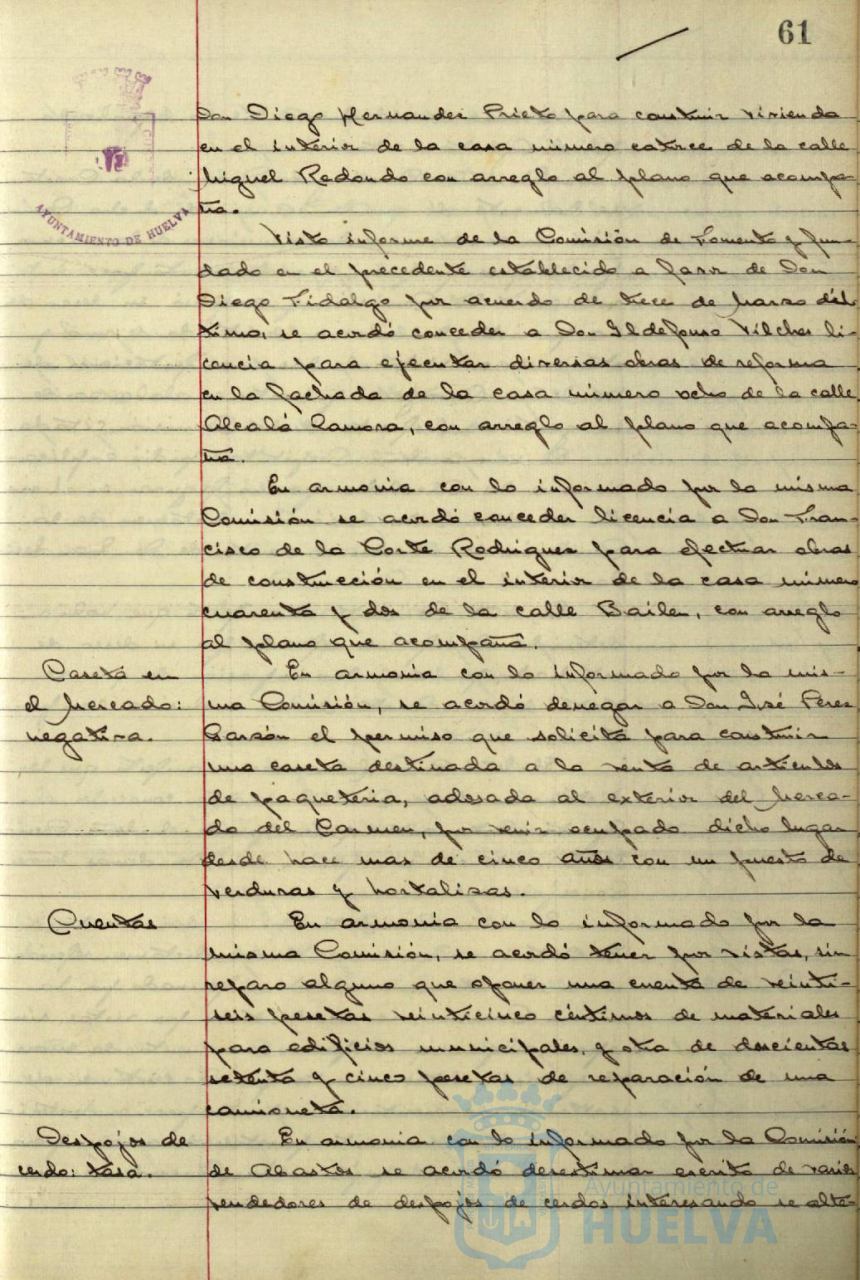 61
AYUNTAMIENTO DE HUELVA
Don Diego Hernandez Prieto para construir vivienda
en el interior de la casa número catorce de la calle
Miguel Redondo con arreglo al plano que acompa-
ña.
Visto informe de la Comisión de Fomento y fun-
dado en el precedente establecido a favor de Don
Diego Fidalgo por acuerdo de trece de Marzo últ
timo, se acordó conceder a Don Ildefonso Vilches li-
cencia para ejecutar diversas obras de reforma
en la fachada de la casa número ocho de la calle
Alcalá Zamora, con arreglo al plano que acompa-
ña.
En armonia con lo informado por la misma
Comisión se acordó conceder licencia a Don Fran-
cisco de la Corte Rodriguez para efectuar obras
de construcción en el interior de la casa número
cuarenta y dos de la calle Bailen, con arreglo
al plano que acompaña.
Caseta en
el Mercado:
negativa.
En armonia con lo informado por la mis-
ma Comisión, se acordó denegar a Don José Perez
Garzón el permiso que solicita para construir
una caseta destinada a la venta de articulos
de paqueteria, adosada al exterior del Merca-
do del Carmen, por venir ocupado dicho lugar
desde hace mas de cinco años con un puesto de
verduras y hortalizas.
Cuentas
En armonia con lo informado por la
misma Comisión, se acordó tener por vistas, sin
reparo alguno que oponer una cuenta de veinti-
seis pesetas veinticinco céntimos de materiales
para edificios municipales, y otra de doscientas
setenta y cinco pesetas de reparación de una
camioneta.
Despojos de
cerdo: tasa.
En armonia con lo informado por la Comisión
de Abastos se acordó desestimar escrito de varios
vendedores de despojos de cerdos interesando se alte-
Ayuntamiento de
HUELVA